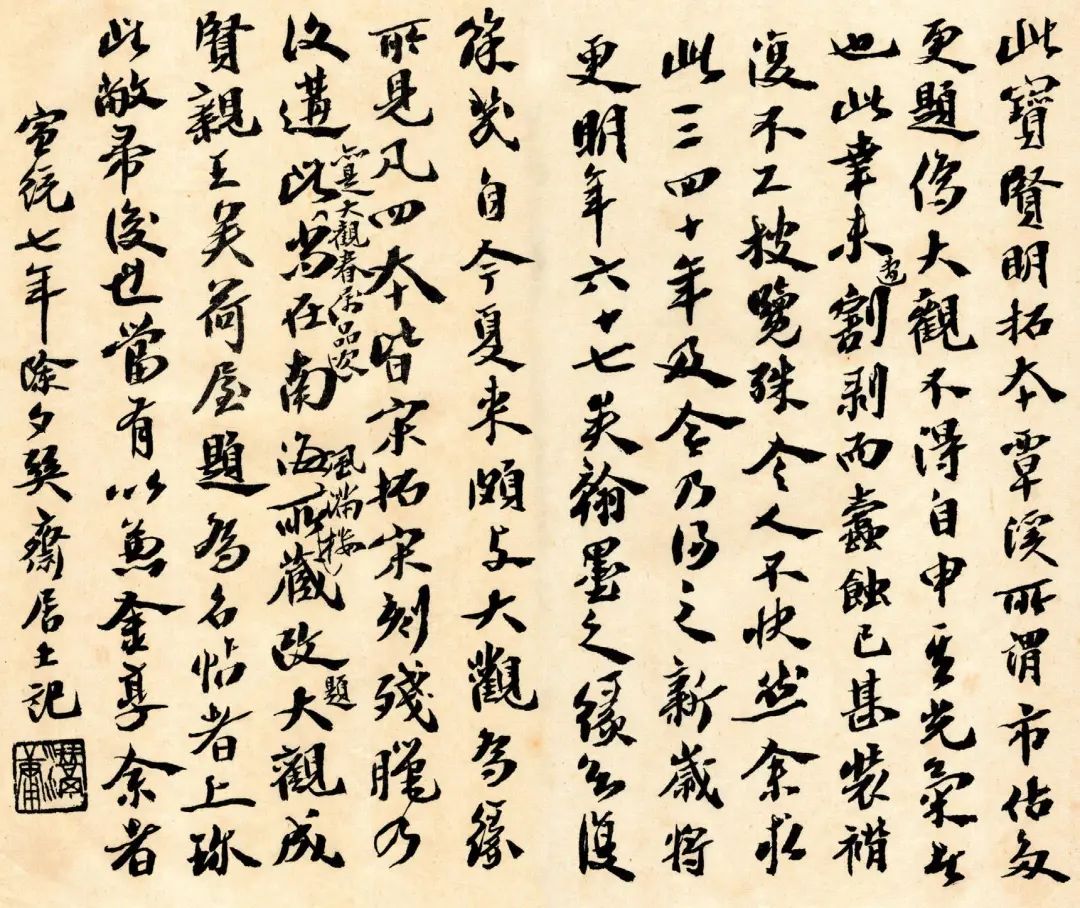 此寶賢明拓本覃溪所謂市估多
更題僞大觀不得自申其光氣者
也此幸未遭割剥而蠹蝕已甚裝褙
復不工披覽殊令人不快然余求
此三四十年及今乃得之新歲將
更明年六十七矣翰墨之緣復
餘幾自今夏來頗与大觀爲緣
所見凡四本皆宋拓宋刻殘臘乃
復遘此亦是大觀眷屬品次當在南海風滿樓所藏改題大觀成
賢親王矣荷屋題爲名帖者上珎
此敝帚後世當有以兼金享余者
宣統七年除夕巽齋居士記